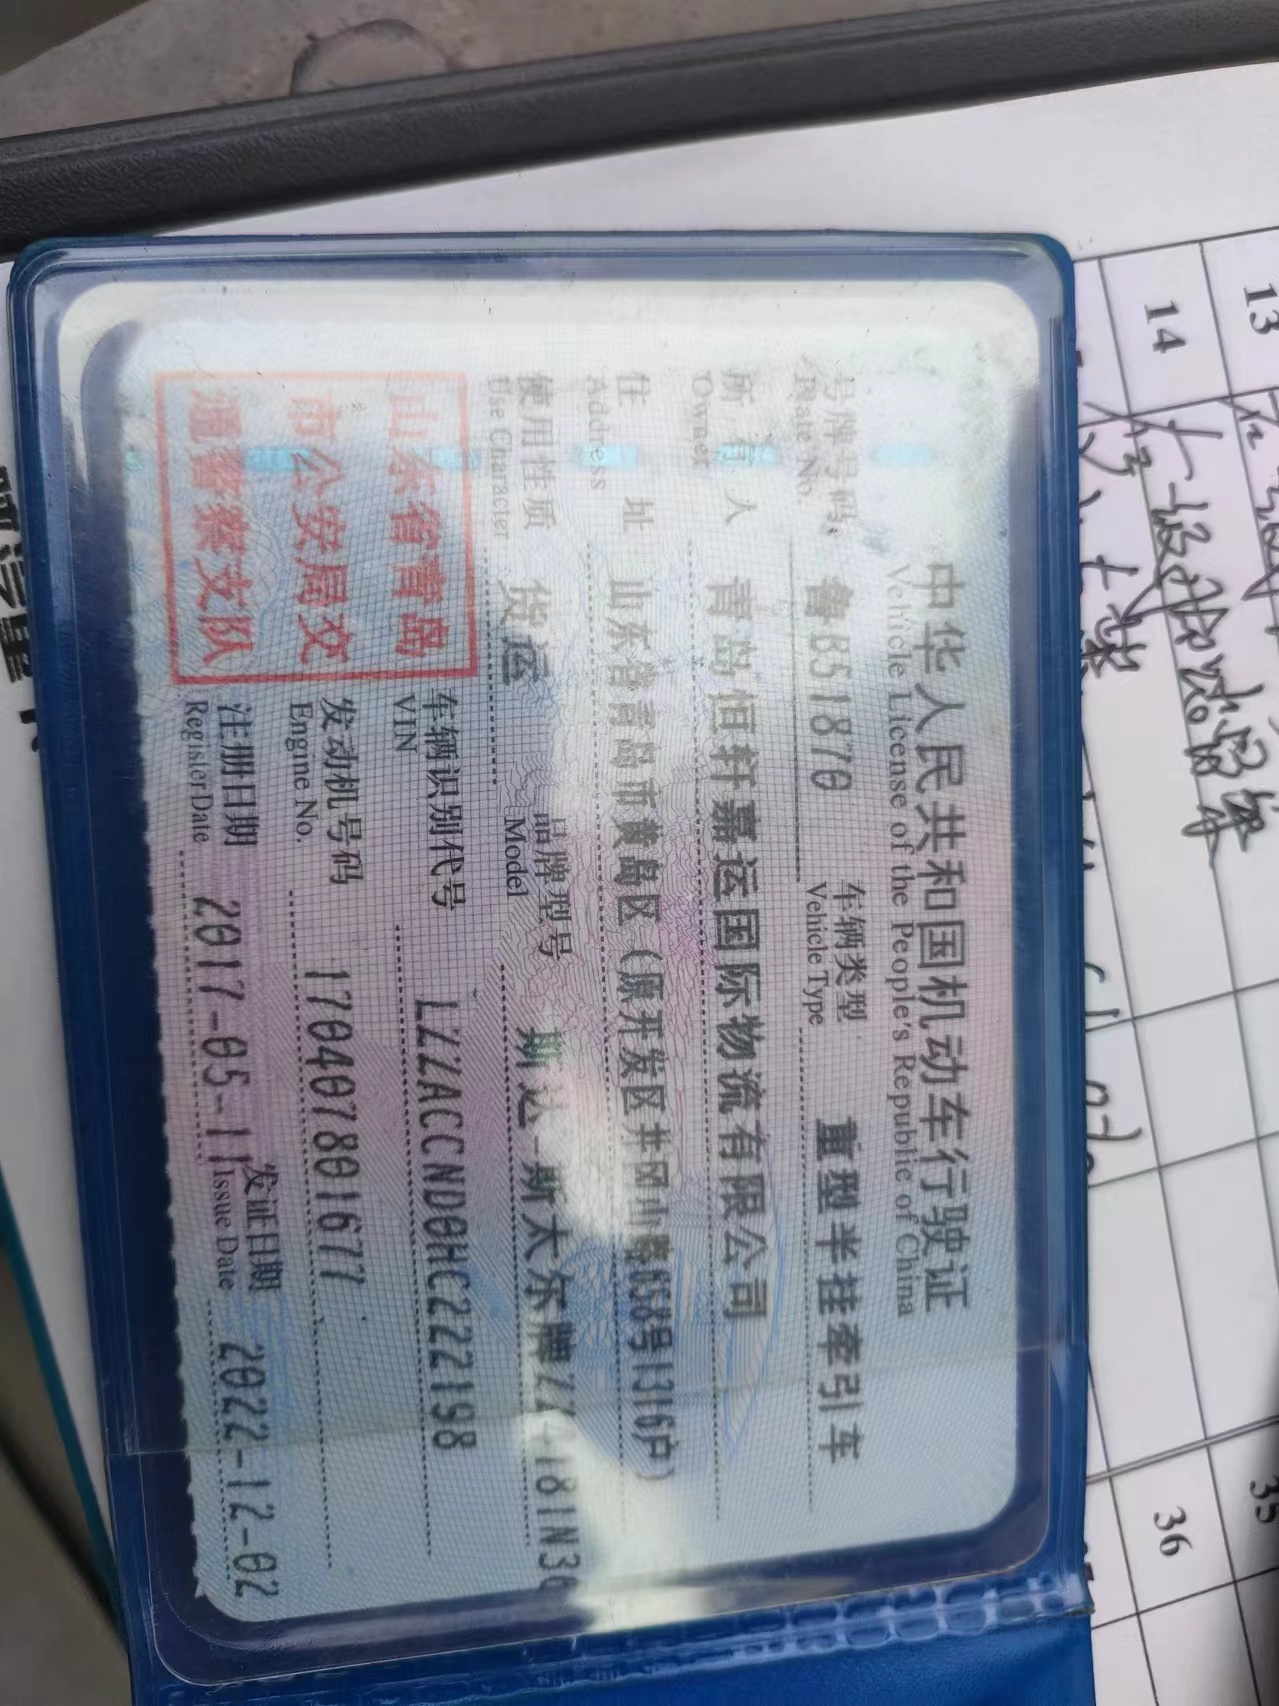 中华人民共和国机动车行驶证
Vehicle License of the People's Republic of China
号牌号码 鲁B51870 车辆类型 重型半挂牵引车
Plate No. Vehicle Type
所有人 青岛恒轩嘉运国际物流有限公司
Owner
住址 山东省青岛市黄岛区(原开发区井冈山路658号1316户)
Address
使用性质 货运 品牌型号 斯达-斯太尔牌
Use Character Model
山东省青岛
市公安局交
通警察支队
车辆识别代号 LZZACCND0HC222198
VIN
发动机号码 170407801677
Engine No.
注册日期 2017-05-11 发证日期 2022-12-02
Register Date Issue Date
13
14
35
36